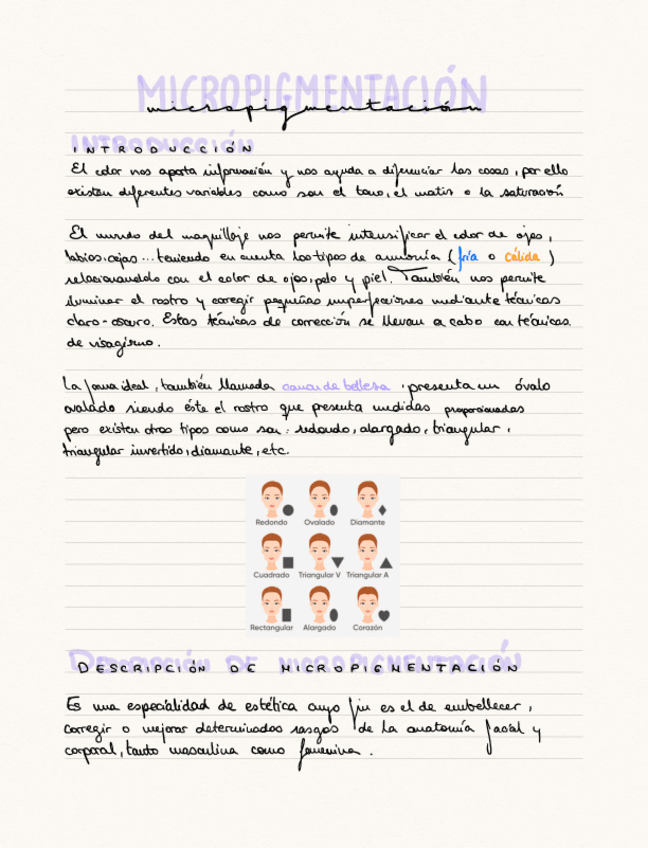 MICROPIGMENTACIÓN
micropigmentación
INTRODUCCIÓN
El color nos aporta información y nos ayuda a diferenciar las cosas, por ello
existen diferentes variables como son el tono, el matiz o la saturación
El mundo del maquillaje nos permite intensificar el color de ojos,
labios, cejas... teniendo en cuenta los tipos de armonía (fría o cálida)
relacionandolo con el color de ojos, pelo y piel. También nos permite
iluminar el rostro y corregir pequeñas imperfecciones mediante técnicas
claro-oscuro. Estas técnicas de corrección se llevan a cabo con técnicas
de visagismo.
La forma ideal, también llamada canon de belleza, presenta un óvalo
ovalado siendo éste el rostro que presenta medidas proporcionadas
pero existen otros tipos como son: redondo, alargado, triangular,
triangular invertido, diamante, etc.
Redondo Ovalado Diamante
Cuadrado Triangular V Triangular A
Rectangular Alargado Corazón
DESCRIPCIÓN DE MICROPIGMENTACIÓN
Es una especialidad de estética cuyo fin es el de embellecer,
corregir o mejorar determinados rasgos de la anatomía facial y
corporal, tanto masculina como femenina.